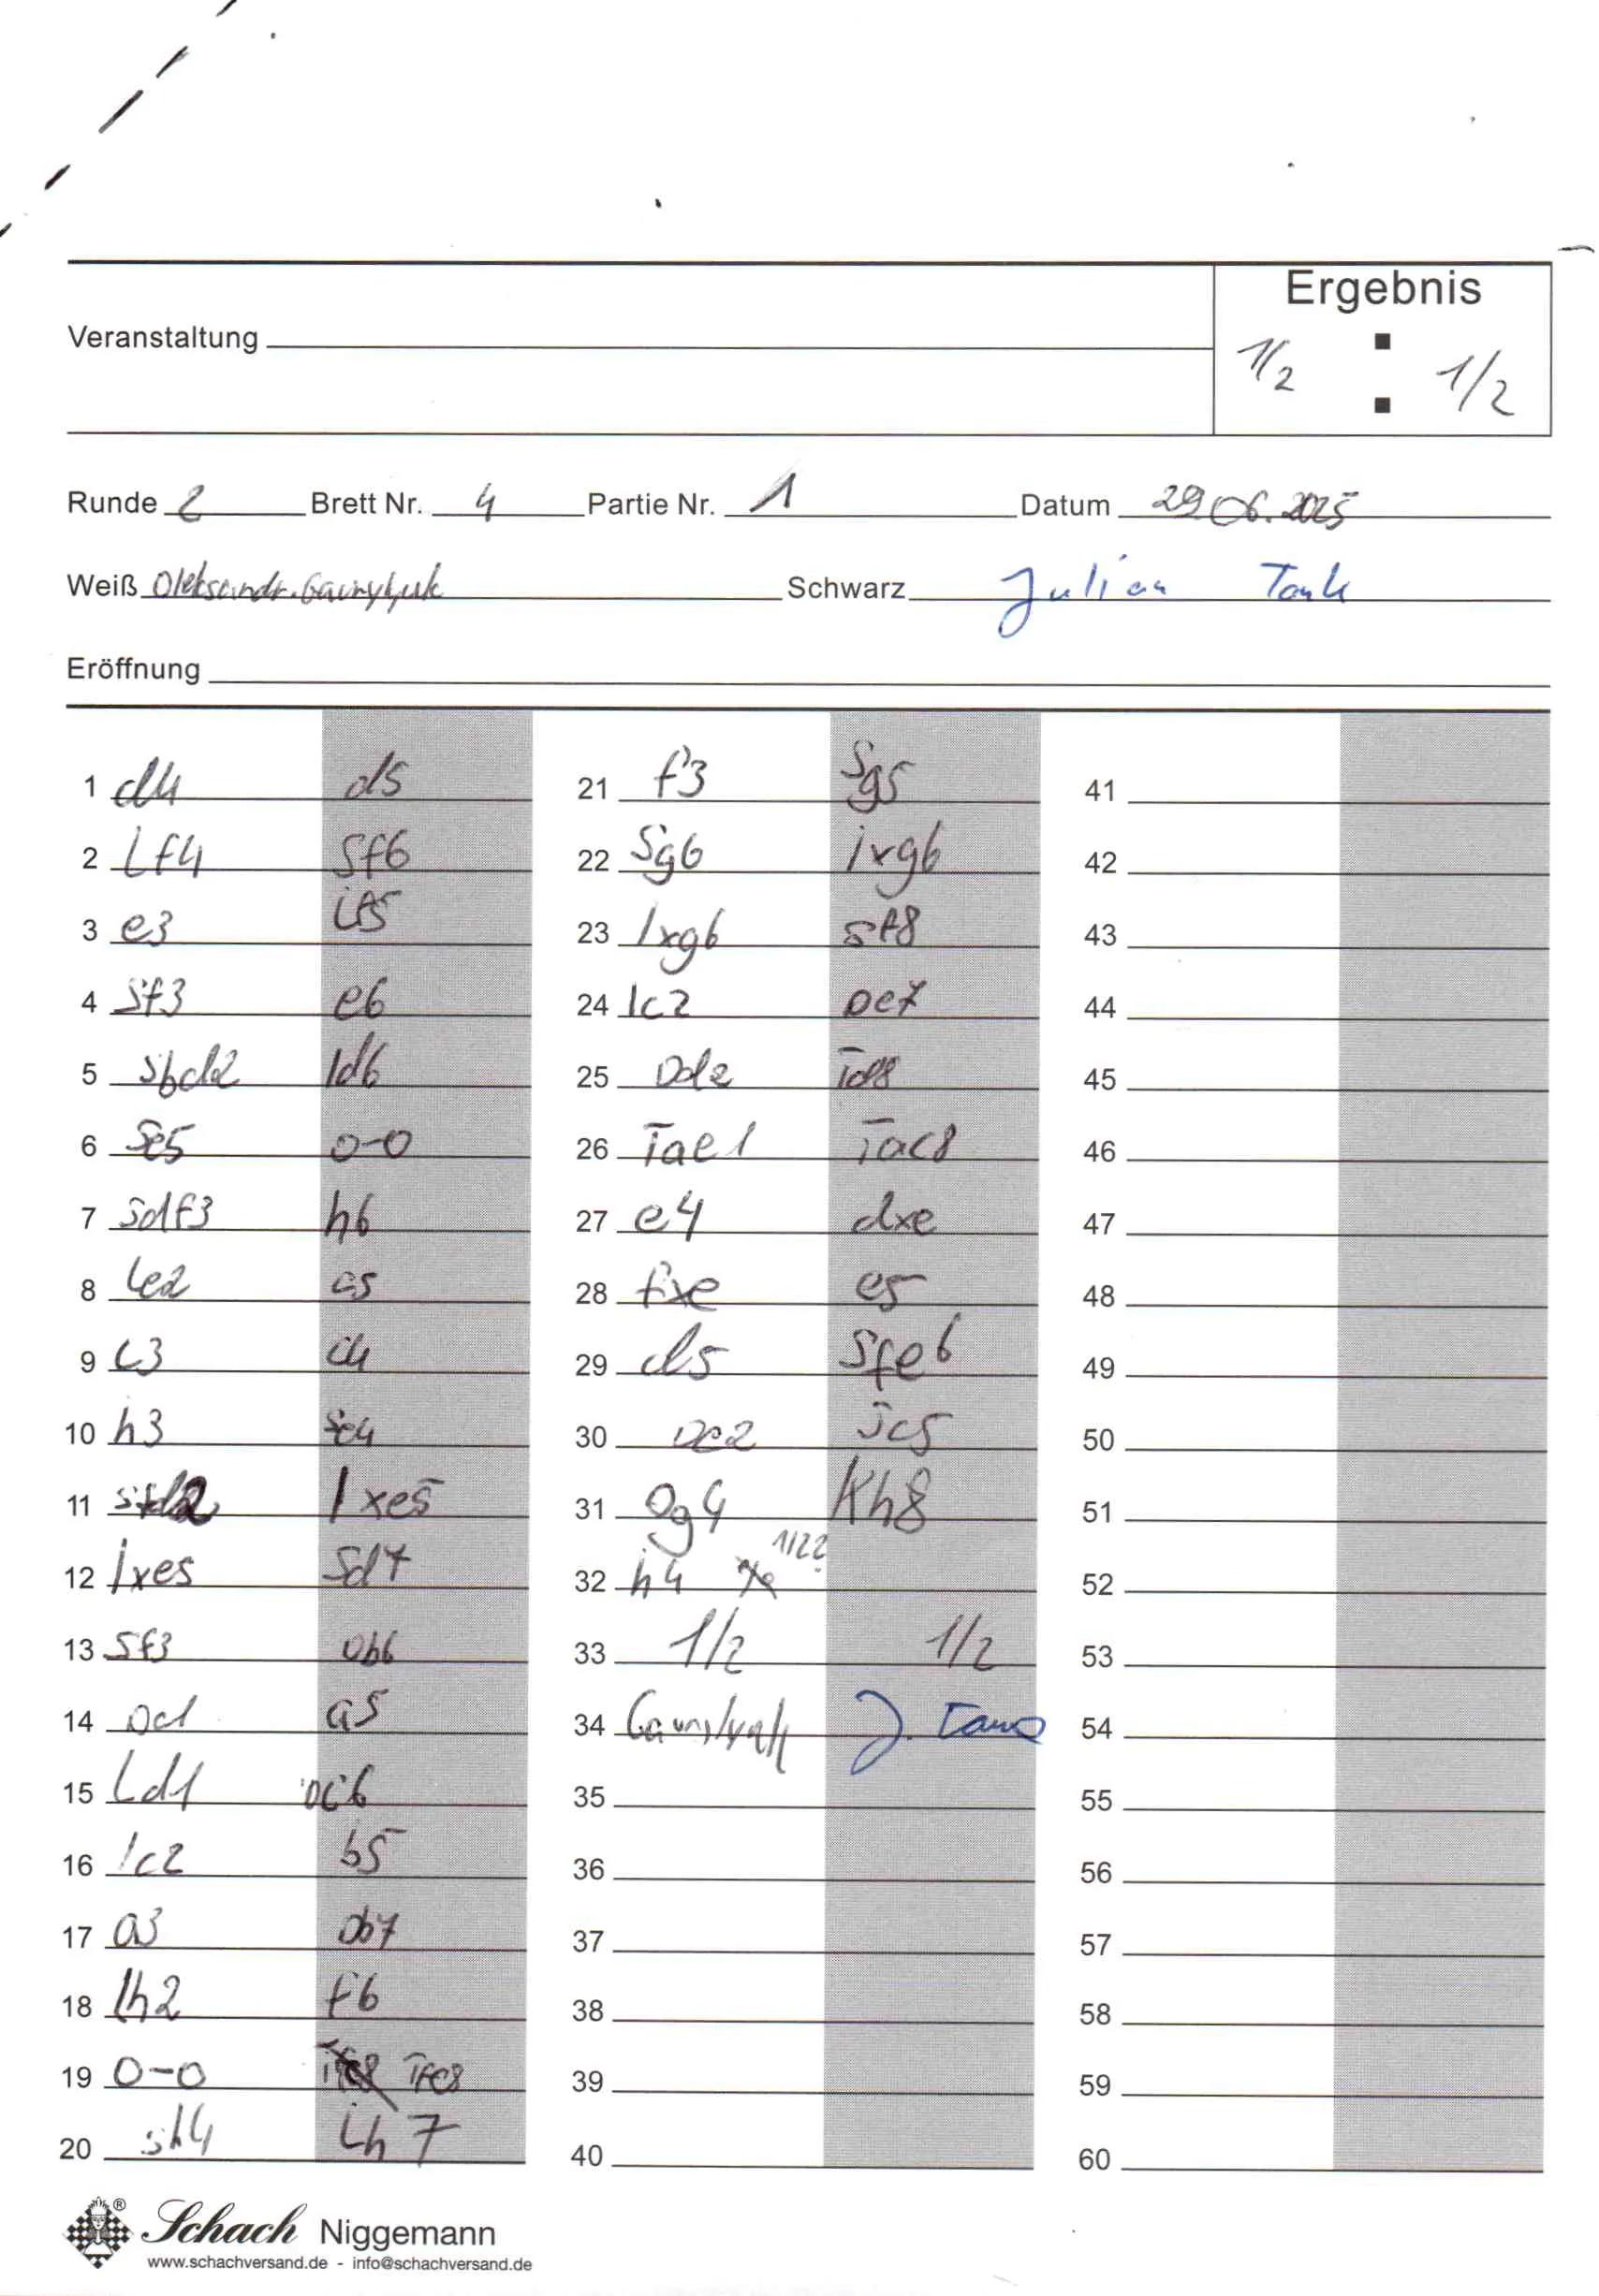 Ergebnis
Veranstaltung
1/2 : 1/2
Runde 2 Brett Nr. 4 Partie Nr. 1 Datum 29.06.2025
Weiß Oleksandr Schwarz Julian Tank
Eröffnung
1 d4 d5
2 Lf4 Sf6
3 e3 Lf5
4 Sf3 e6
5 Sbd2 ld6
6 Se5 0-0
7 Sdf3 h6
8 Le2 c5
9 c3 c4
10 h3 Se4
11 Sfd2 lxe5
12 lxe5 Sd7
13 Sf3 Db6
14 Dc1 a5
15 Ld1 Dc6
16 lc2 b5
17 a3 Db7
18 lh2 f6
19 0-0 Tfe8 Tfc8
20 Sh4 Lh7
21 f3 Sg5
22 Sg6 lxg6
23 lxg6 Sf8
24 lc2 De7
25 Dd2 Td8
26 Tae1 Tac8
27 e4 dxe
28 fxe e5
29 d5 Sfe6
30 De2 Sc5
31 Dg4 Kh8
32 h4
33 1/2 1/2
34 J.
35
36
37
38
39
40
41
42
43
44
45
46
47
48
49
50
51
52
53
54
55
56
57
58
59
60
® Schach Niggemann
www.schachversand.de - info@schachversand.de